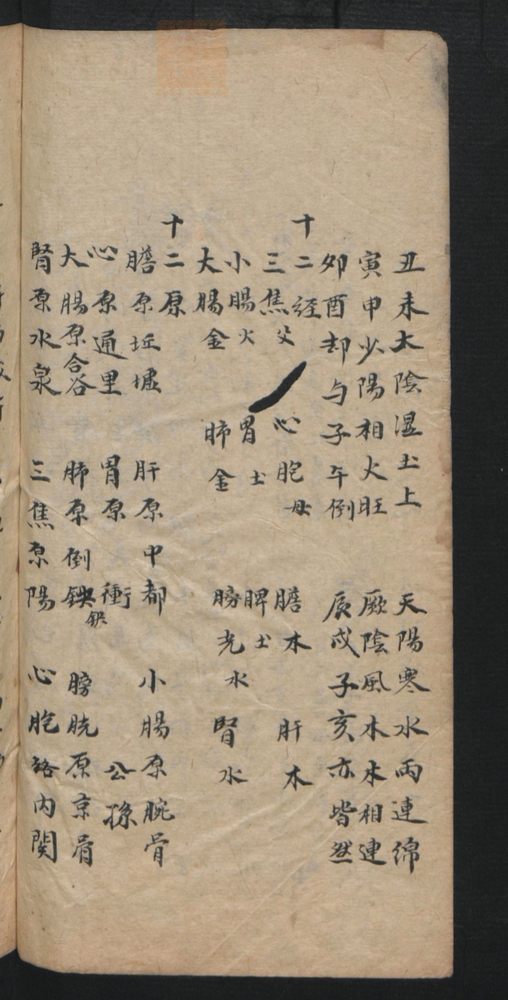 丑未太陰湿土上 天陽寒水两連綿
寅申少陽相火旺 厥陰風木木相連
卯酉却与子午倒 辰戌子亥亦皆然
十二経
三焦父 心胞母 膽木 肝木
小腸火 胃土 脾土
大腸金 肺金 膀光水 腎水
十二原
膽原坵墟 肝原中都 小腸原腕骨
心原通里 胃原衝 公孫
大腸原合谷 肺原倒鉠 膀胱原京骨
腎原水泉 三焦原陽 心胞絡内関